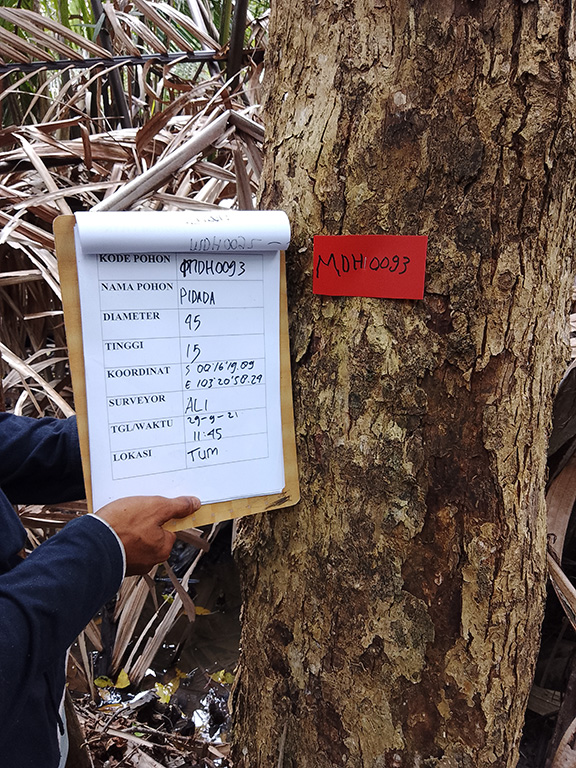 MDH0025
KODE POHON MDH0093
NAMA POHON PIDADA
DIAMETER 45
TINGGI 15
KOORDINAT S 00°16'19.09
E 103°20'58.29
SURVEYOR ALI
TGL/WAKTU 29-9-21
11:45
LOKASI TUM
MDH0093